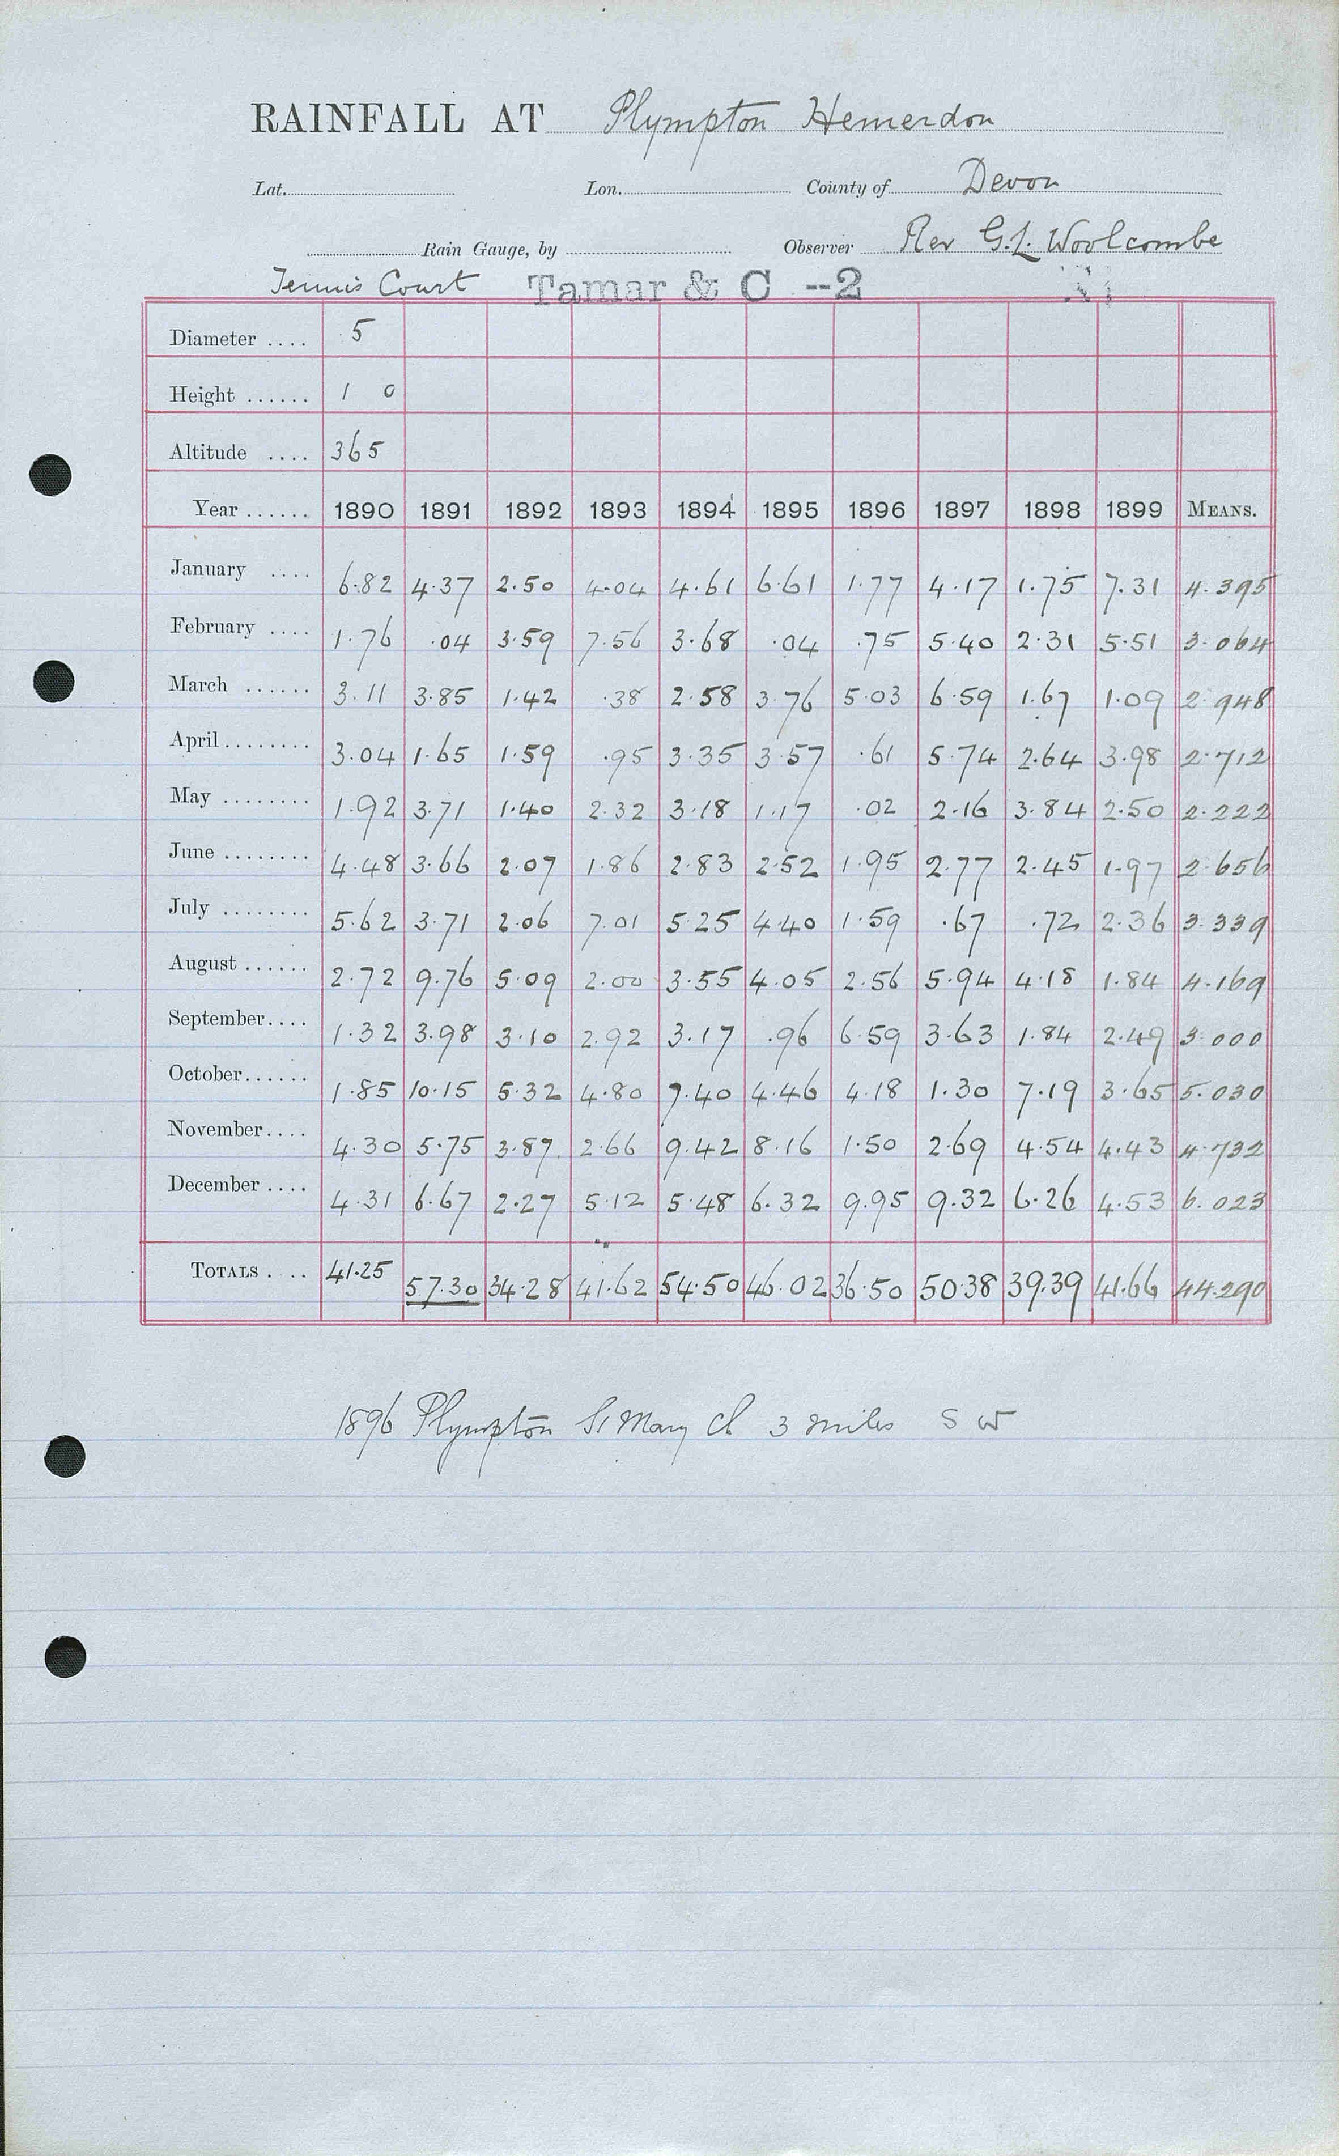 RAINFALL AT Plympton Hemerdon
Lat. Lon. County of Devon
Rain Gauge, by Observer Rev G.L. Woolcombe
Tennis Court Tamar & C --2 XI
Diameter .... 5
Height ...... 1 0
Altitude .... 365
Year ...... 1890 1891 1892 1893 1894 1895 1896 1897 1898 1899 MEANS.
January .... 6.82 4.37 2.50 4.04 4.61 6.61 1.77 4.17 1.75 7.31 4.395
February .... 1.76 .04 3.59 7.56 3.68 .04 .75 5.40 2.31 5.51 3.064
March ...... 3.11 3.85 1.42 .38 2.58 3.76 5.03 6.59 1.67 1.09 2.948
April ........ 3.04 1.65 1.59 .95 3.35 3.57 .61 5.74 2.64 3.98 2.712
May ........ 1.92 3.71 1.40 2.32 3.18 1.17 .02 2.16 3.84 2.50 2.222
June ........ 4.48 3.66 2.07 1.86 2.83 2.52 1.95 2.77 2.45 1.97 2.656
July ........ 5.62 3.71 2.06 7.01 5.25 4.40 1.59 .67 .72 2.36 3.339
August ...... 2.72 9.76 5.09 2.00 3.55 4.05 2.56 5.94 4.18 1.84 4.169
September.... 1.32 3.98 3.10 2.92 3.17 .96 6.59 3.63 1.84 2.49 3.000
October...... 1.85 10.15 5.32 4.80 7.40 4.46 4.18 1.30 7.19 3.65 5.030
November.... 4.30 5.75 3.87 2.66 9.42 8.16 1.50 2.69 4.54 4.43 4.732
December .... 4.31 6.67 2.27 5.12 5.48 6.32 9.95 9.32 6.26 4.53 6.023
TOTALS .... 41.25 57.30 34.28 41.62 54.50 46.02 36.50 50.38 39.39 41.66 44.290
1896 Plympton St Mary Ch 3 miles S W